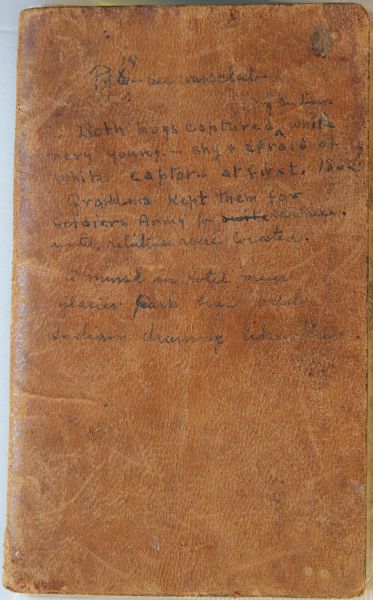 Pg 6 - see
by Indians
Both boys captured ^ while
very young. - shy & afraid of
white captors at first. 1862
Grandma kept them for
Soldiers Army for
until relatives were located.
A mural in Hotel near
glacier park has odd
Indian drawing like these.